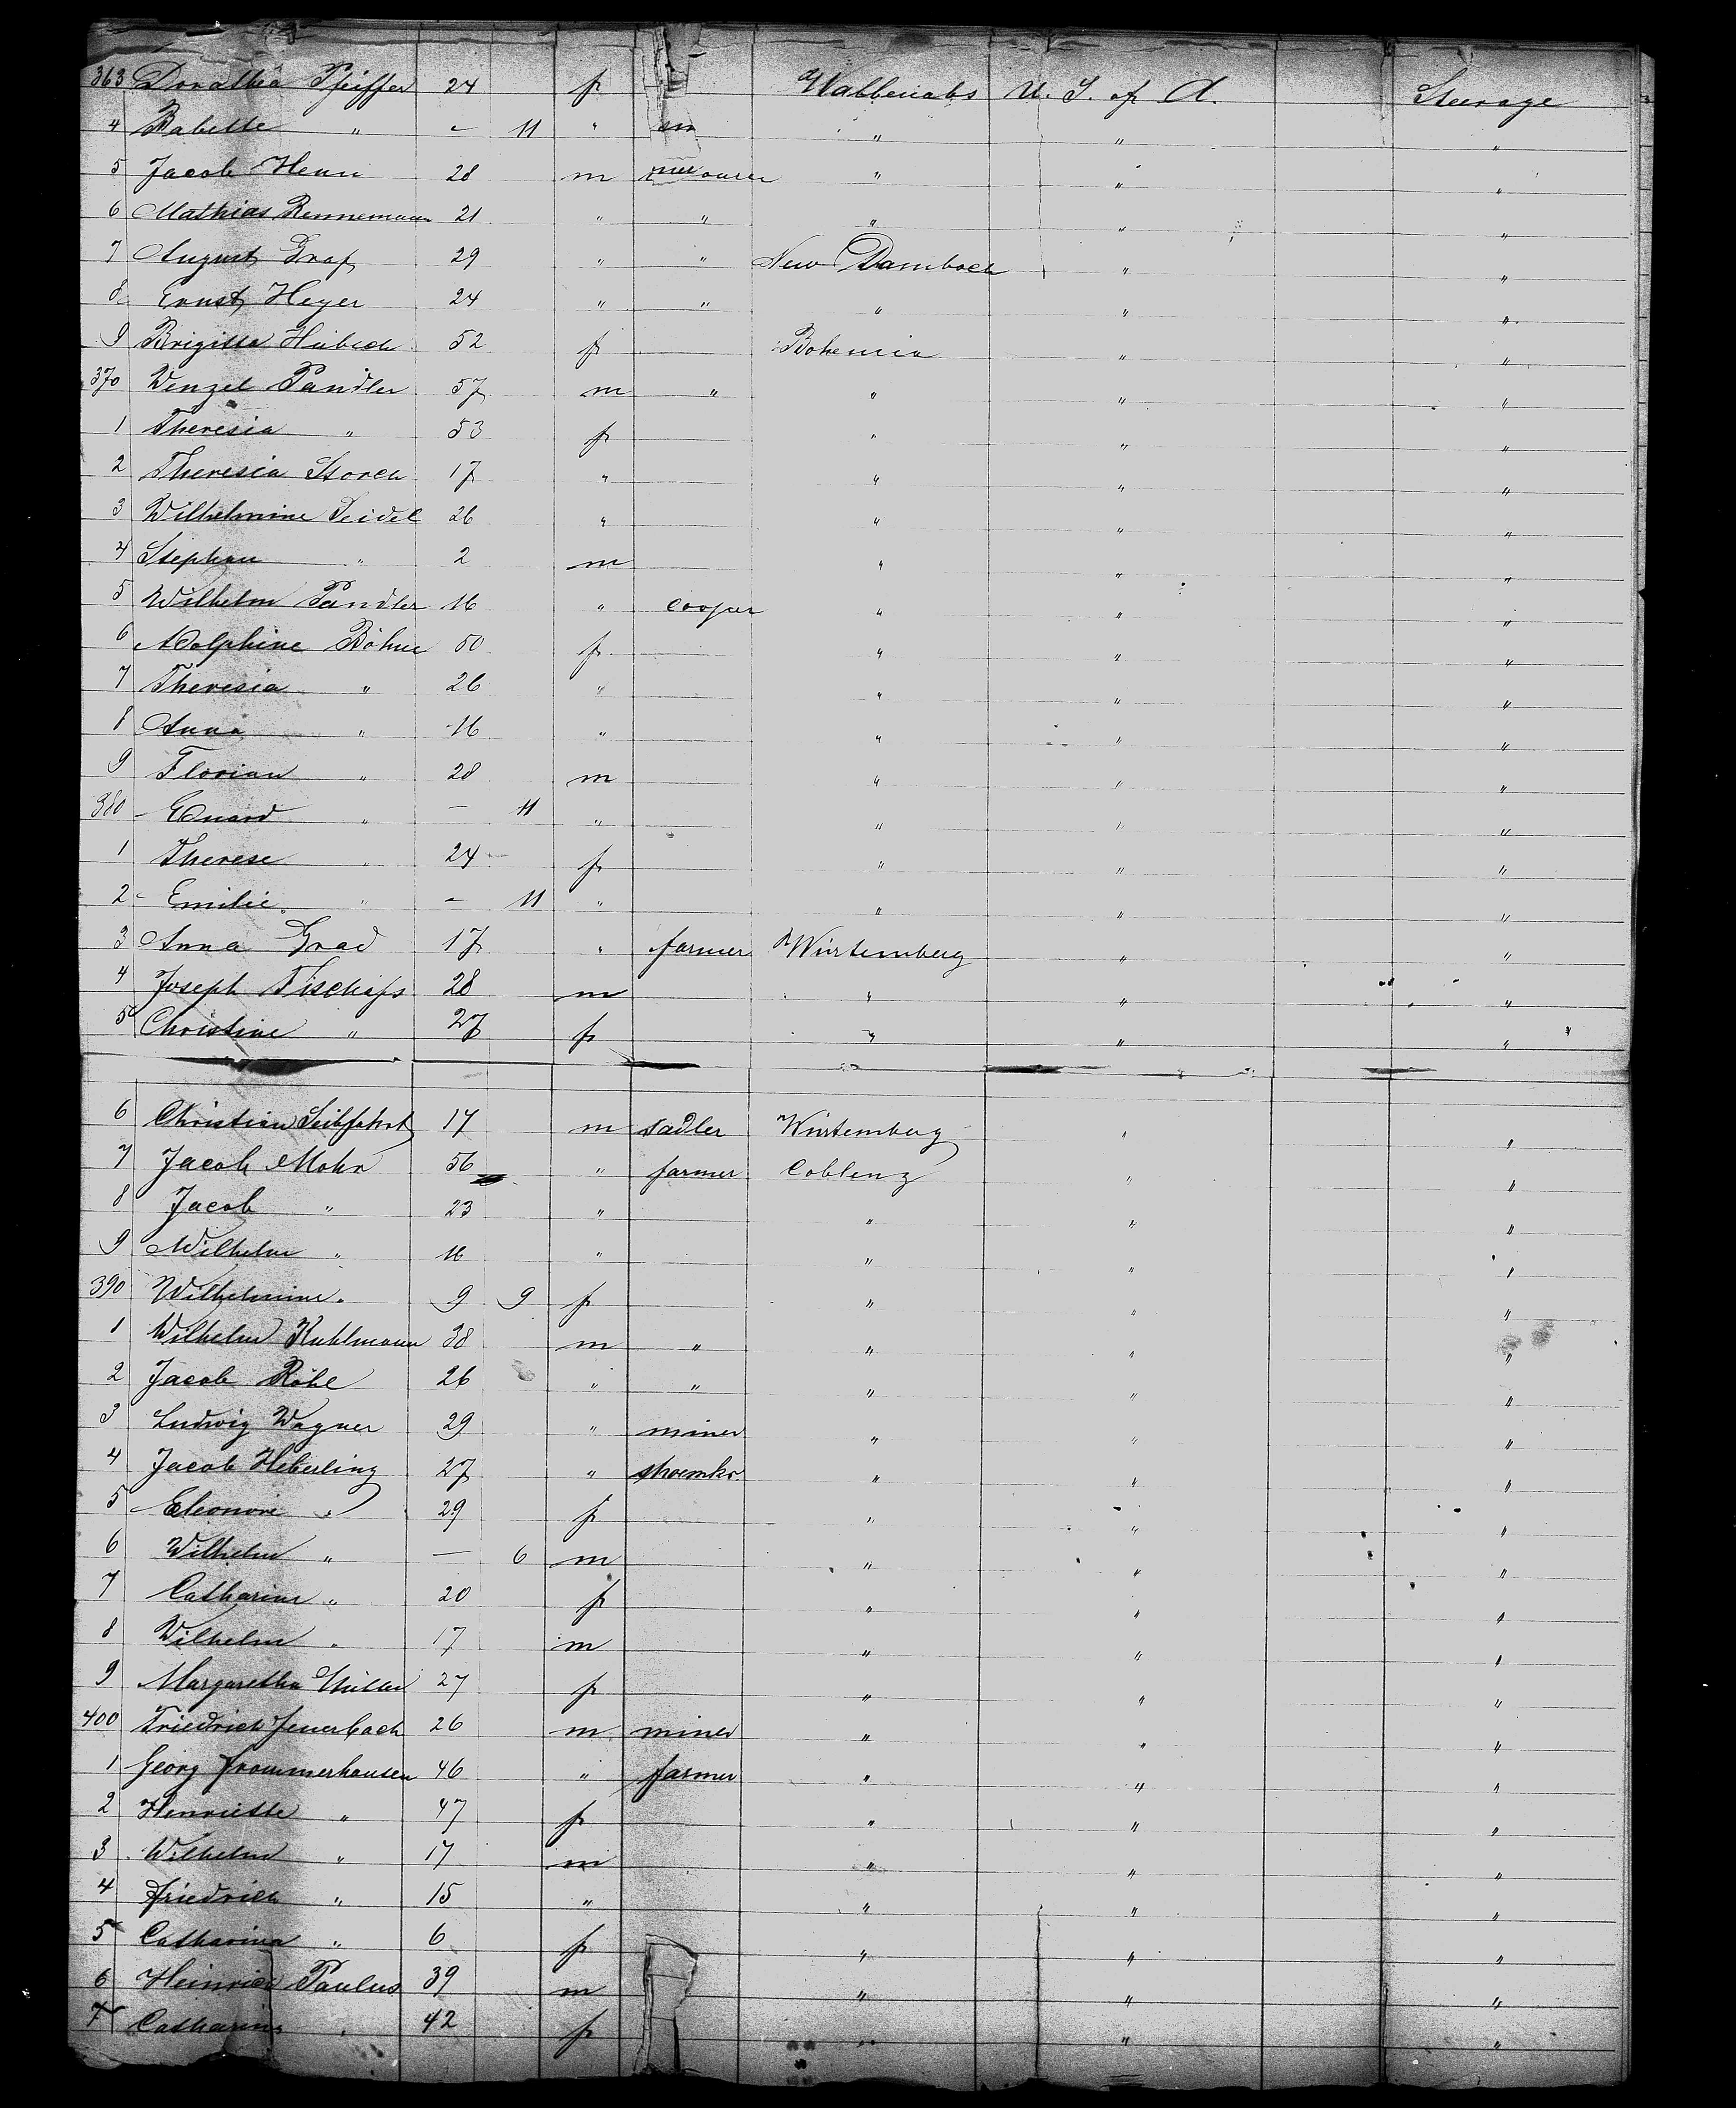 363 Dorathea Pfeiffer 24 f U. S. of A. Steerage
4 Babette " - 11 " " " "
5 Jacob Henri 28 m " " "
6 Mathias Rennemann 21 " " " " "
7 August Graf 29 " " New Dambach " "
8 Ernst Heyer 24 " " " " "
9 Brigitta Hübsch 52 f Bohemia " "
370 Wenzel Pandler 57 m " " " "
1 Theresia " 53 f " " "
2 Theresia Storch 17 " " " "
3 Wilhelmine Seidel 26 " " " "
4 Stephan " 2 m " " "
5 Wilhelm Pandler 16 " cooper " " "
6 Adolphine Böhm 50 f " " "
7 Theresia " 26 " " " "
8 Anna " 16 " " " "
9 Florian " 28 m " " "
380 Eduard " - 11 " " " "
1 Therese " 24 f " " "
2 Emilie " - 11 " " " "
3 Anna Grad 17 " farmer Würtemberg " "
4 Joseph 28 m " " "
5 Christine " 27 f " " "
6 Christian Seibfahrt 17 m sadler Würtemberg " "
7 Jacob Mohr 56 " farmer Coblenz " "
8 Jacob " 23 " " " "
9 Wilhelm " 16 " " " "
390 Wilhelmine " 9 9 f " " "
1 Wilhelm Kuhlmann 38 m " " " "
2 Jacob Röhl 26 " " " " "
3 Ludwig Wagner 29 " miner " " "
4 Jacob Heberling 27 " shoemkr " " "
5 Eleonore " 29 f " " "
6 Wilhelm " - 6 m " " "
7 Catharine " 20 f " " "
8 Wilhelm " 17 m " " "
9 Margaretha Müller 27 f " " "
400 Friedrich Feuerbach 26 m miner " " "
1 Georg Frommerhausen 46 " farmer " " "
2 Henriette " 47 f " " "
3 Wilhelm " 17 m " " "
4 Friedrich " 15 " " " "
5 Catharina " 6 f " " "
6 Heinrich Paulus 39 m " " "
7 Catharine " 42 f " " "